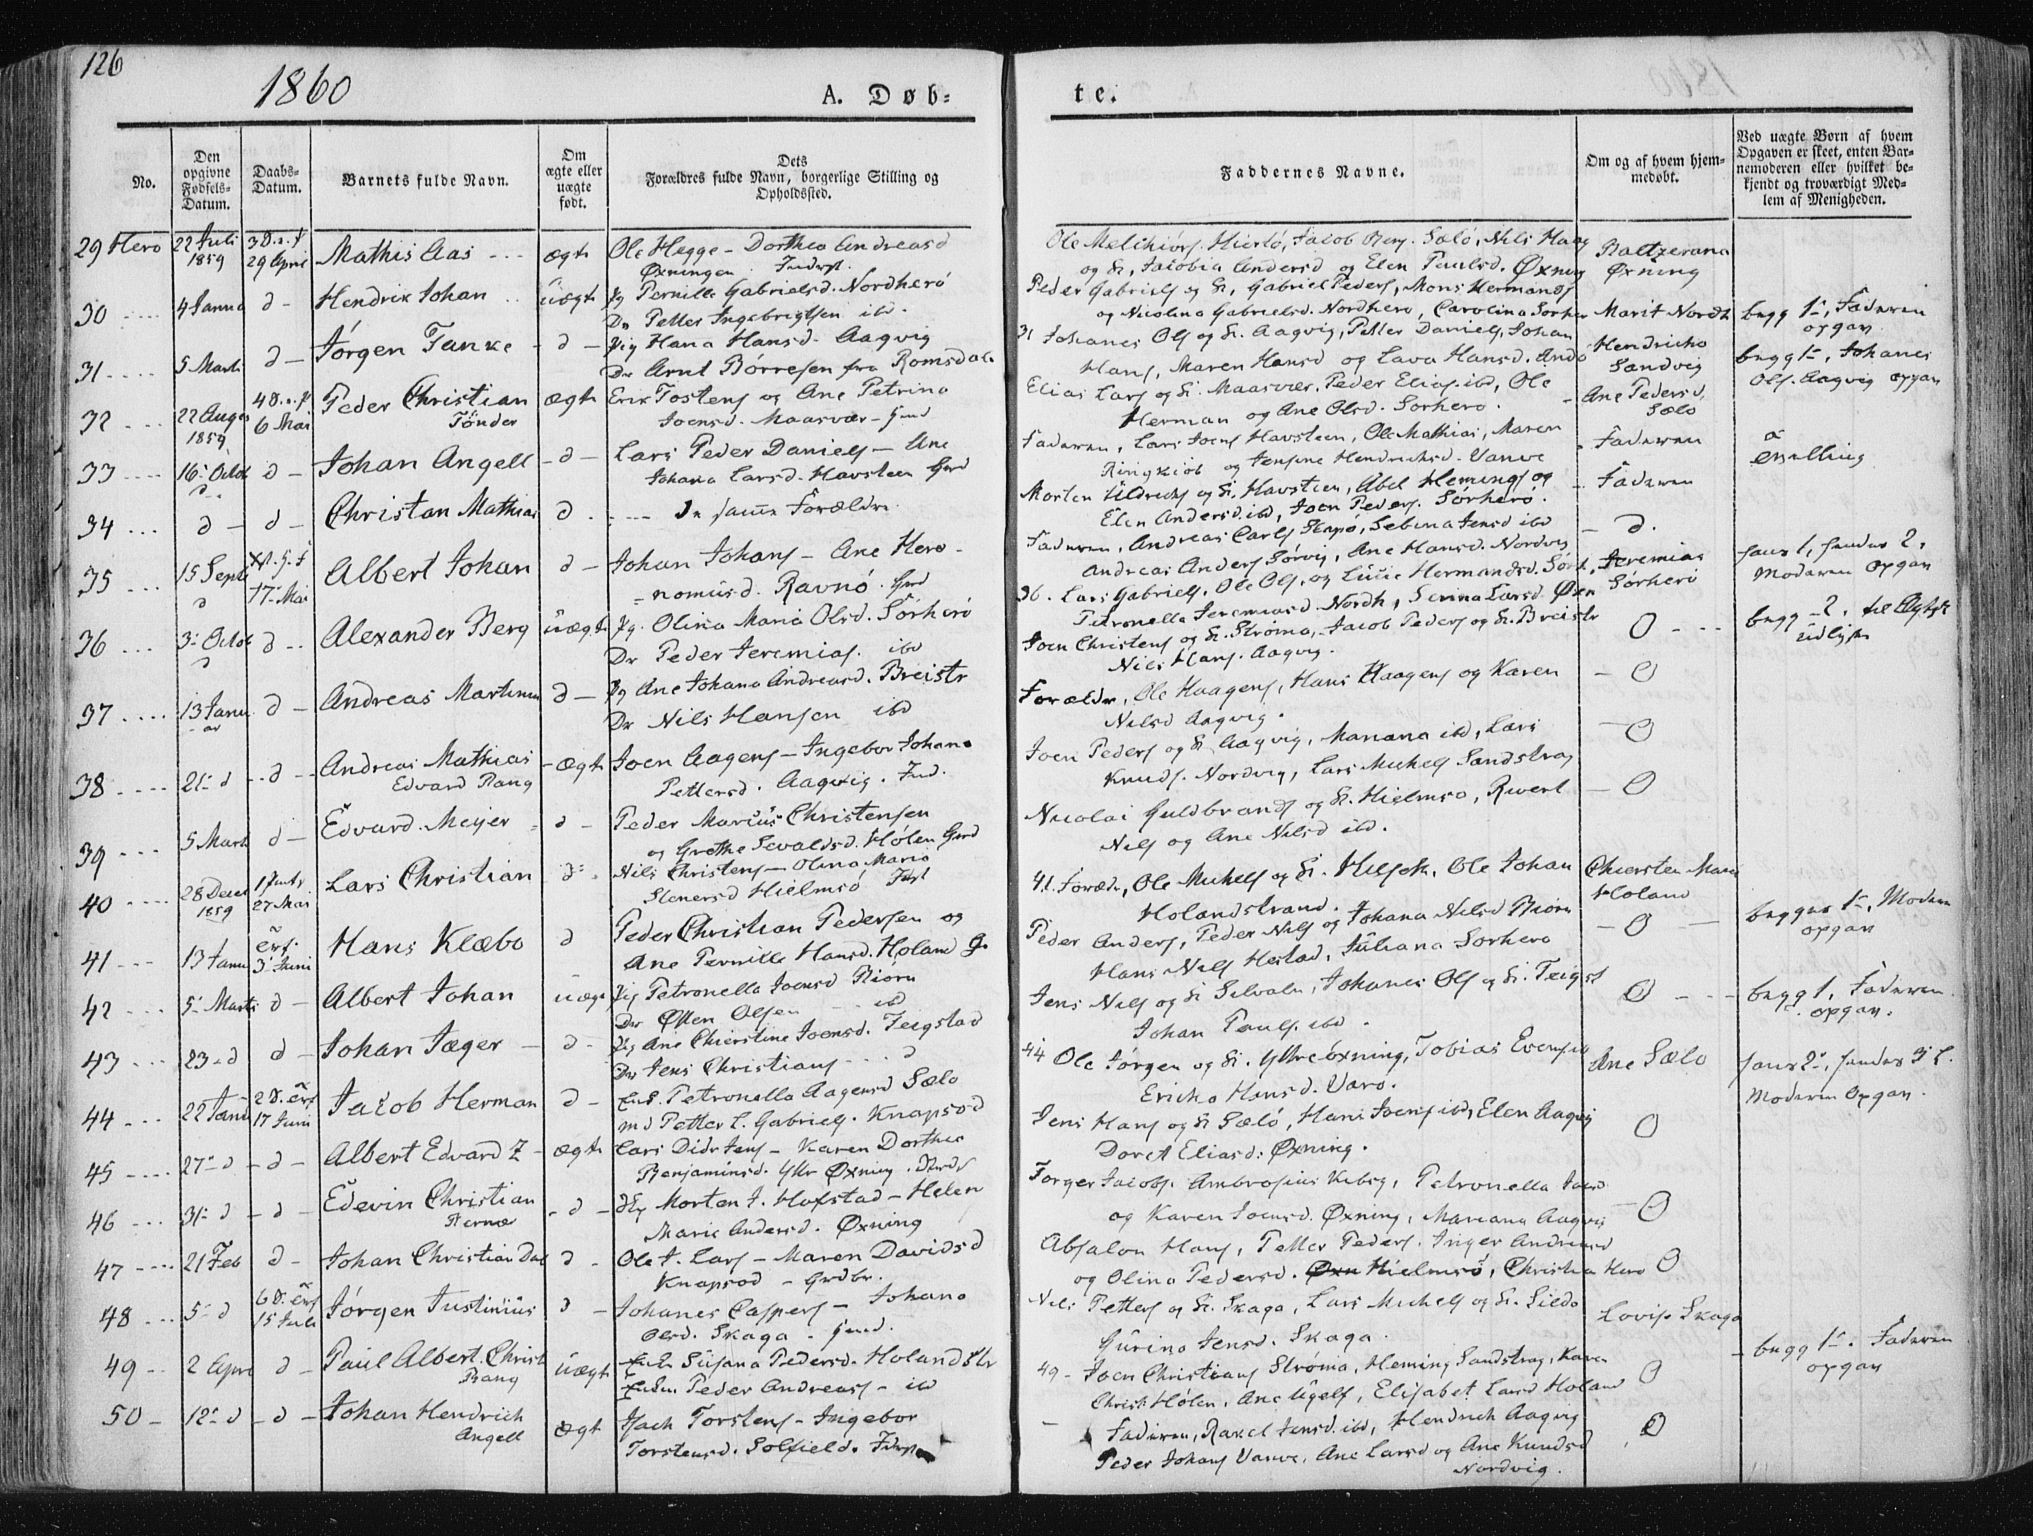 126
1860
A. Døb-
te.
No.
Den opgivne Fødsels-Datum.
Daabs-Datum.
Barnets fulde Navn.
Om ægte eller uægte født.
Dets Forældres fulde Navn, borgerlige Stilling og Opholdssted.
Faddernes Navne.
Om og af hvem hjem-medøbt.
Ved uægte Børn af hvem Opgaven er skeet, enten Bar-nemoderen eller hvilket be-kjendt og troværdigt Med-lem af Menigheden.
29 Herø 22 Juli 1859 29 April Mathis Aas ægte Ole Hegge - Dorthea Andreasd
Øxningen. Inderst.
Ole Melchiørs. Hierlø, Jacob Berg. Sælø, Nils Haag
og H. Jacobia Andersd og Elen Paulsd. Øxning
Baltzerana
Øxning
30 4 Janua d - Hendrik Johan uægte Pg Pernille Gabrielsd. Nordherø
Dr Petter Ingebrigtsen ibd.
Peder Gabriels og H, Gabriel Peders, Mons Hermands
og Nicolina Gabrielsd. Nordherø, Carolina Sørher
Marit Nordh
begg 1-, Faderen
opgav
31 5 Marti d - Jørgen Tanke - d - Pig Hana Hansd. Aagvig
Dr Arnt Børresen fra Romsdale
31 Johanes Ols og H. Aagvig, Petter Daniels, Johan
Hans, Maren Hansd og Lava Hansd. Andø
Hendricha
Sandvig
begg 1-, Johanes
Ols. Aagvig opgav
32 22 Augus 1859 6 Mai Peder Christian
Tönder ægte Erik Tostens og Ane Petrina
Joensd. Maasvær - Gmd
Elias Lars og H. Maasvær, Peder Elias. ibd, Ole
Herman og Ane Olsd. Sørherø.
Ane Pedersd,
Sælø
33 16- Octob d - Johan Angell - d - Lars Peder Daniels - Ane
Johana Larsd. Havsteen Grd
Faderen, Lars Joens Havsteen, Ole Mathias, Maren
Ringkiøb og Jensine Hendrichsd. Vanve
Faderen
Tvilling
34 d - d - Christan Mathias d. De samme Forældre.
Morten Uldrichs og H. Havsteen, Abel Hemings og
Elen Andersd. ibd, Joen Peders. Sørherø.
Faderen
35 15 Septb 17- Mai Albert Johan d - Johan Johans - Ane Hero-
nomusd. Ravnø. Grd
Faderen, Andreas Carls Skapø, Sebina Jensd ibd
Andreas Anders Sørvig, Ane Hansd. Nordvig
- d.
36 3- Octob d - Alexander Berg uægte Pg. Olina Maria Olsd. Sørherø
Dr Peder Jeremias. ibd
36. Lars Gabriels, Ole Ols, og Lucie Hermandsd. Sørh
Petronella Jeremiasd. Nordh, Serina Larsd. Øxn
Jeremias
Sørherø
faur 1, fendes 2,
Moderen opgav
37 13 Janu d - Andreas Martinus d - Pg Ane Johana Andreasd. Breistr
Dr Nils Hansen ibd
Joen Christens og H. Strøma, Jacob Peders og H. Breistr
Nils Hans. Aagvig.
0
begg - 2,
38 21- d - d - Andreas Mathias
Edvard Rang - ægte Joen Aagens - Ingebor Johana
Pettersd. Aagvig. Ind.
Forældr, Ole Haagens, Hans Haagens og Karen
Nilsd Aagvig.
0
39 5 Mart d - Edvard Meijer - d - Peder Marcus Christensen
og Grethe Sevaldsd. Hølen Gmd
Joen Peders og H. Aagvig, Mariana ibd, Lars
Knuds. Nordvig, Lars Michels Sandstrag
0
40 28 Decbr 1859 27 Mai Lars Christian d. Nils Christens - Olina Maria
Stenersd Hielmsø
Nicolai Guldbrands og H. Hielmsø, Sivert
Nils og Ane Nilsd ibd.
0
41 13 Janu 3- Juni Hans Klæbo d Peder Christian Pedersen og
Ane Pernille Hansd. Høland G
41. Forældr, Ole Michels og H. Hilstok, Ole Johan
Holandstrand.
Chiersten Maria
Holand
42 5- Marts d - Albert Johan uægte Pig Petronella Joensd Biørn
Dr Østen Olsen - ibd
Peder Anders, Peder Nils og Johana Nilsd Biørn
Hans Nils Hestad, Juliana Sørherø
0
begges 1-, Moderen
opgav
43 23 - d d - Johan Jæger - d - Pig Ane Chierstine Joensd. Teigstad
Dr Jens Christians d
Jens Nils og H Selvaln, Johanes Ols og H. Teigst
Johan Pauls. ibd.
0
begg 1, Faderen
opgav.
44 22 Janu 17 Juni Jacob Herman d - Petronella Aagensd Sælø
md Petter L. Gabriels. Knapsod
44 Ole Jørgen og H. Yttreøxning, Tobias Evens ib
Ericka Hansd. Varø.
Ane Sælø
faur 2-, fendes
Moderen opgav.
45 27- d - d - Albert Edvard Z - ægte Lars Didr Jens - Karen Dorthea
Benjaminsd. Yttr Øxning.
Jens Hans og H Sælø, Hans Joens ibd, Elen Aagvig
Doret Eliasd. Øxning.
0
46 31- d - d - Edevin Christian
Bernø - d - Morten J. Hofstad - Helen
Marie Andersd. Øxning
Torger Jacobs. Ambrosius Kibsg, Petronella Jacobsd
og Karen Joensd. Øxning, Mariana Aagvig
0
47 21 Feb d - Johan Christian Dal d - Ole J. Lars - Maren Davidsd
Knapsod - Grdbr.
Absalon Hans, Petter Peders. Inger Andreasd
og Olina Pedersd. Hielmsø, Christina Herø
0
48 5- d 15 Juli Jørgen Justinius d - Johanes Caspers - Johana
Olsd. Skaga. Gmd.
Nils Petters og H. Skaga, Lars Michels og H. Sildø
Gurina Jensd. Skaga.
Lovise Skaga
49 2 April d - Paul Albert. Christ
Rang uægte Susana Pedersd. Holandstr
Peder Andreas - ibd
49 - Joen Christians Strøma, Heming Sandstrag, Karen
Christ Hølen, Ane Ugels, Elisabet Larsd Holand
0
begg 1-. Faderen
opgav
50 - 12- d - d - Johan Hendrich
Angell ægt Isach Torstens - Ingebor
Torstensd. Solfield.
Faderen, Rakel Jensd. ibd, Hendrich Aagvig
Peder Johans Vanve, Ane Larsd og Ane Knudsd
Nordvig.
0